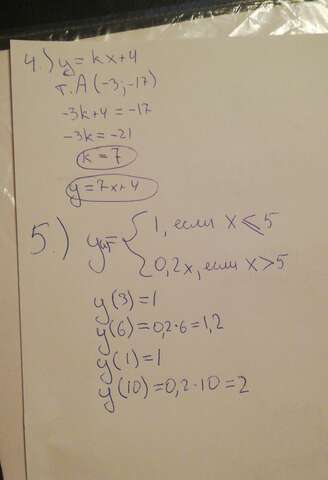 4.) y = kx+4
т. A (-3; -17)
-3k+4 = -17
-3k = -21
k = 7
y = 7x+4
5.) y= { 1, если x ⩽ 5
0,2x, если x > 5
y(3) = 1
y(6) = 0,2·6 = 1,2
y(1) = 1
y(10) = 0,2·10 = 2